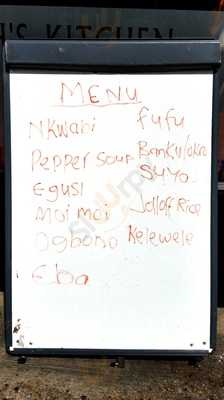 'S KITCHEN
MENU
Nkwani
Pepper Soup
Egusi
Moi moi
Ogbono
Eba
fufu
Banku/akra
Suya
Jolloff Rice
Kelewele